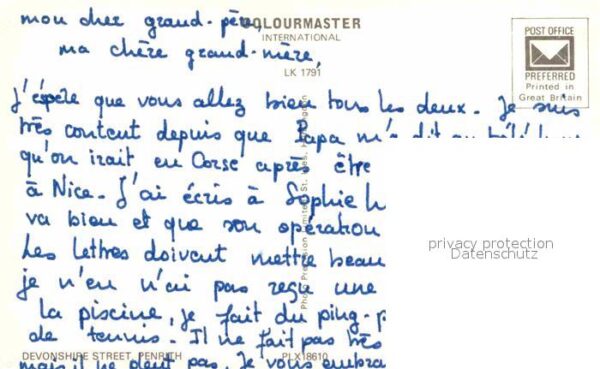 mon cher grand-père,
COLOURMASTER
INTERNATIONAL
ma chère grand-mère,
LK 1791
POST OFFICE
PREFERRED
Printed in
Great Britain
J'éspère que vous allez bien tous les deux. Je suis
très content depuis que Papa m'a dit au
qu'on irait en Corse après être
à Nice. J'ai écris à Sophie
va bien et que son opération
Les lettres doivent mettre beau
je n'en n'ai pas reçu une
la piscine, je fait du ping-p
de tennis. Il ne fait pas très
mais il ne pleut pas. Je vous embra
Photo Precision Limited, St. Ives, Huntingdon
privacy protection
Datenschutz
DEVONSHIRE STREET, PENRITH
PLX18610